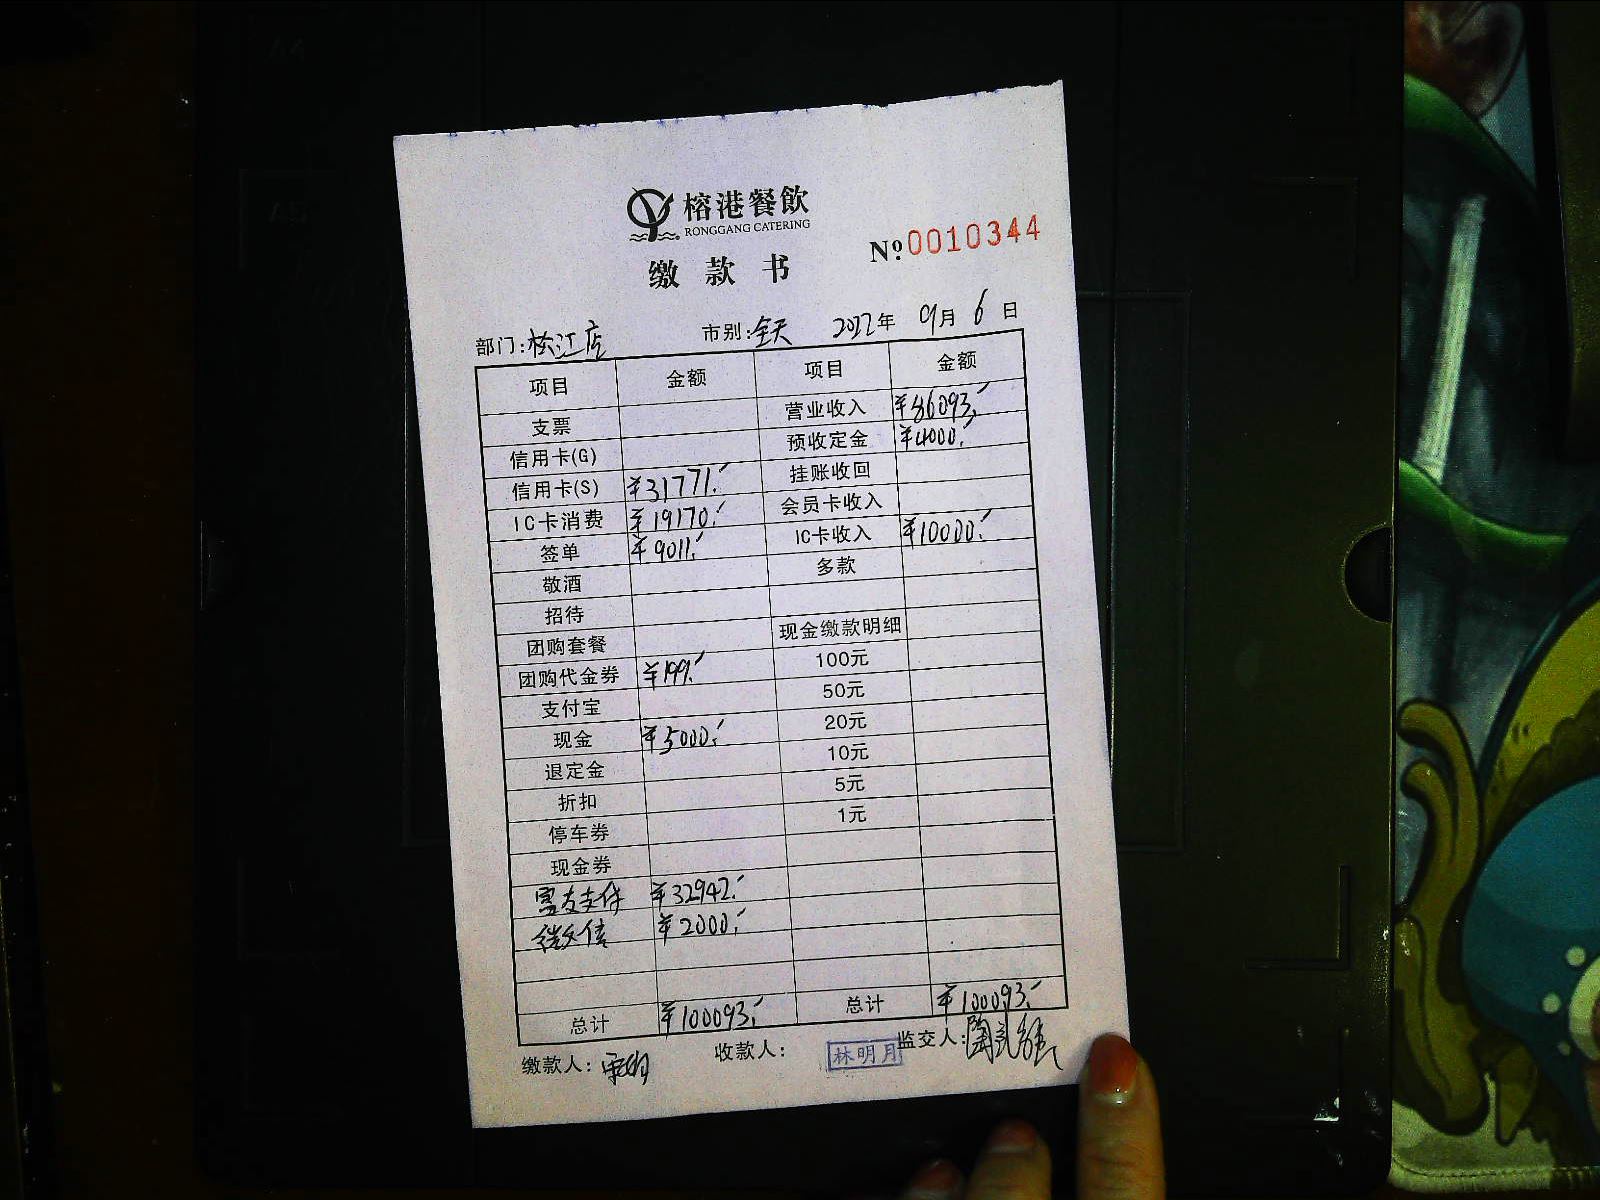 榕港餐飲
RONGGANG CATERING
缴款书
№ 0010344
部门:松江店 市别:全天 2022年9月6日
项目 金额 项目 金额
支票 营业收入 ¥86093.-
信用卡(G) 预收定金 ¥4000.-
信用卡(S) ¥31771.- 挂账收回
IC卡消费 ¥19170.- 会员卡收入
签单 ¥9011.- IC卡收入 ¥10000.-
敬酒 多款
招待
团购套餐 现金缴款明细
团购代金券 ¥199.- 100元
支付宝 50元
现金 ¥5000.- 20元
退定金 10元
折扣 5元
停车券 1元
现金券
富友支付 ¥32942.-
微信 ¥2000.-
总计 ¥100093.- 总计 ¥100093.-
缴款人: 收款人: 林明月 监交人: